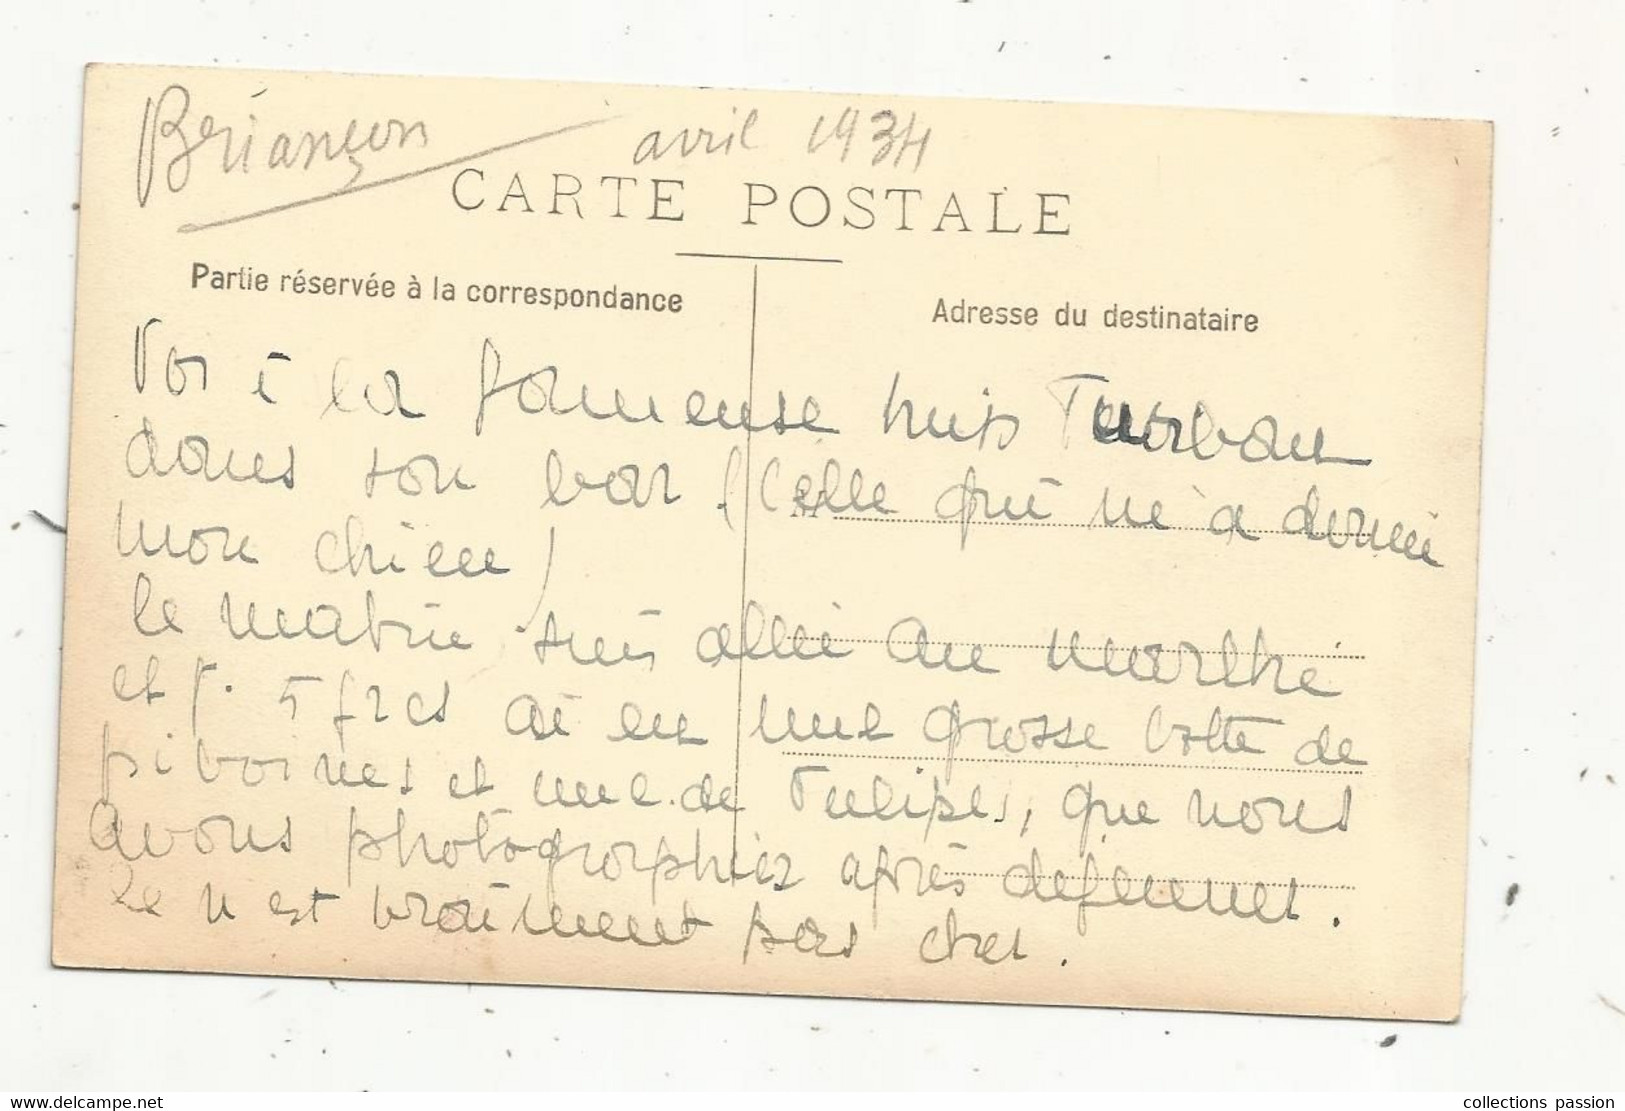 Briançon avril 1934
CARTE POSTALE
Partie réservée à la correspondance
Adresse du destinataire
Voi i la fameuse Turban
dans son bar (Celle qui m'a donné
mon chien)
le matin suis allé au Marché
et p. 5 frcs ai eu une grosse botte de
pivoines et une de Tulipes, que nous
avons photographiées après dejeuner.
Ce n'est vraiment pas cher.
collections passion